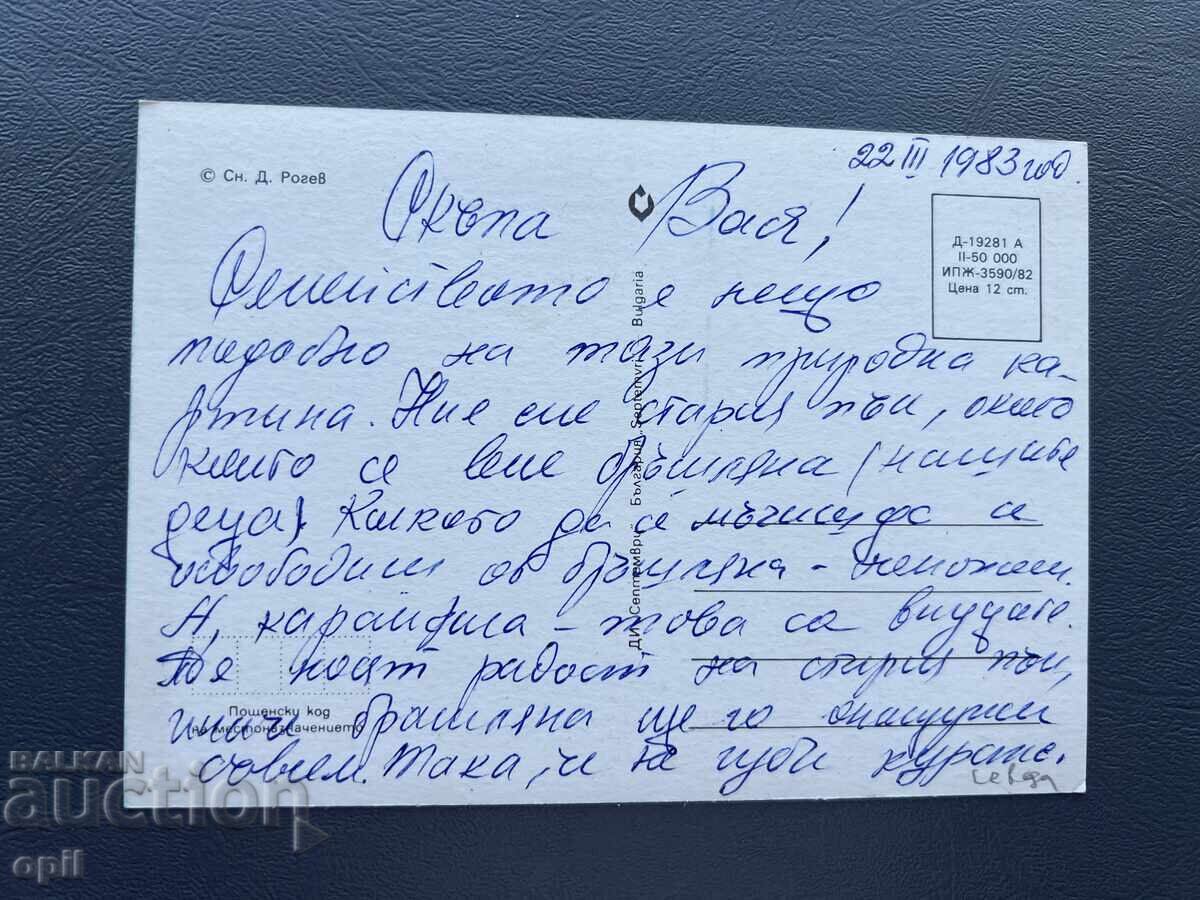 22 III 1983 год.
© Сн. Д. Рогев
Скъпа Вася!
Д-19281 А
II-50 000
ИПЖ-3590/82
Цена 12 ст.
Семейството е нещо
подобно на тази природна ка-
ртина. Ние сме стария пън, около
който се вие бръшляна (нашите
деца). Колкото да се мъчим да се
освободим от бръшляна - неможем.
А, карамфила - това са внуците.
Те носят радост на стария пън,
иначе брашляна ще го
съвсем. Така, че не губи кураж.
Севда
ДИ „Септември“ България „Septemvri“ Bulgaria
Пощенски код
на местоназначението
BALKAN
auction
opil